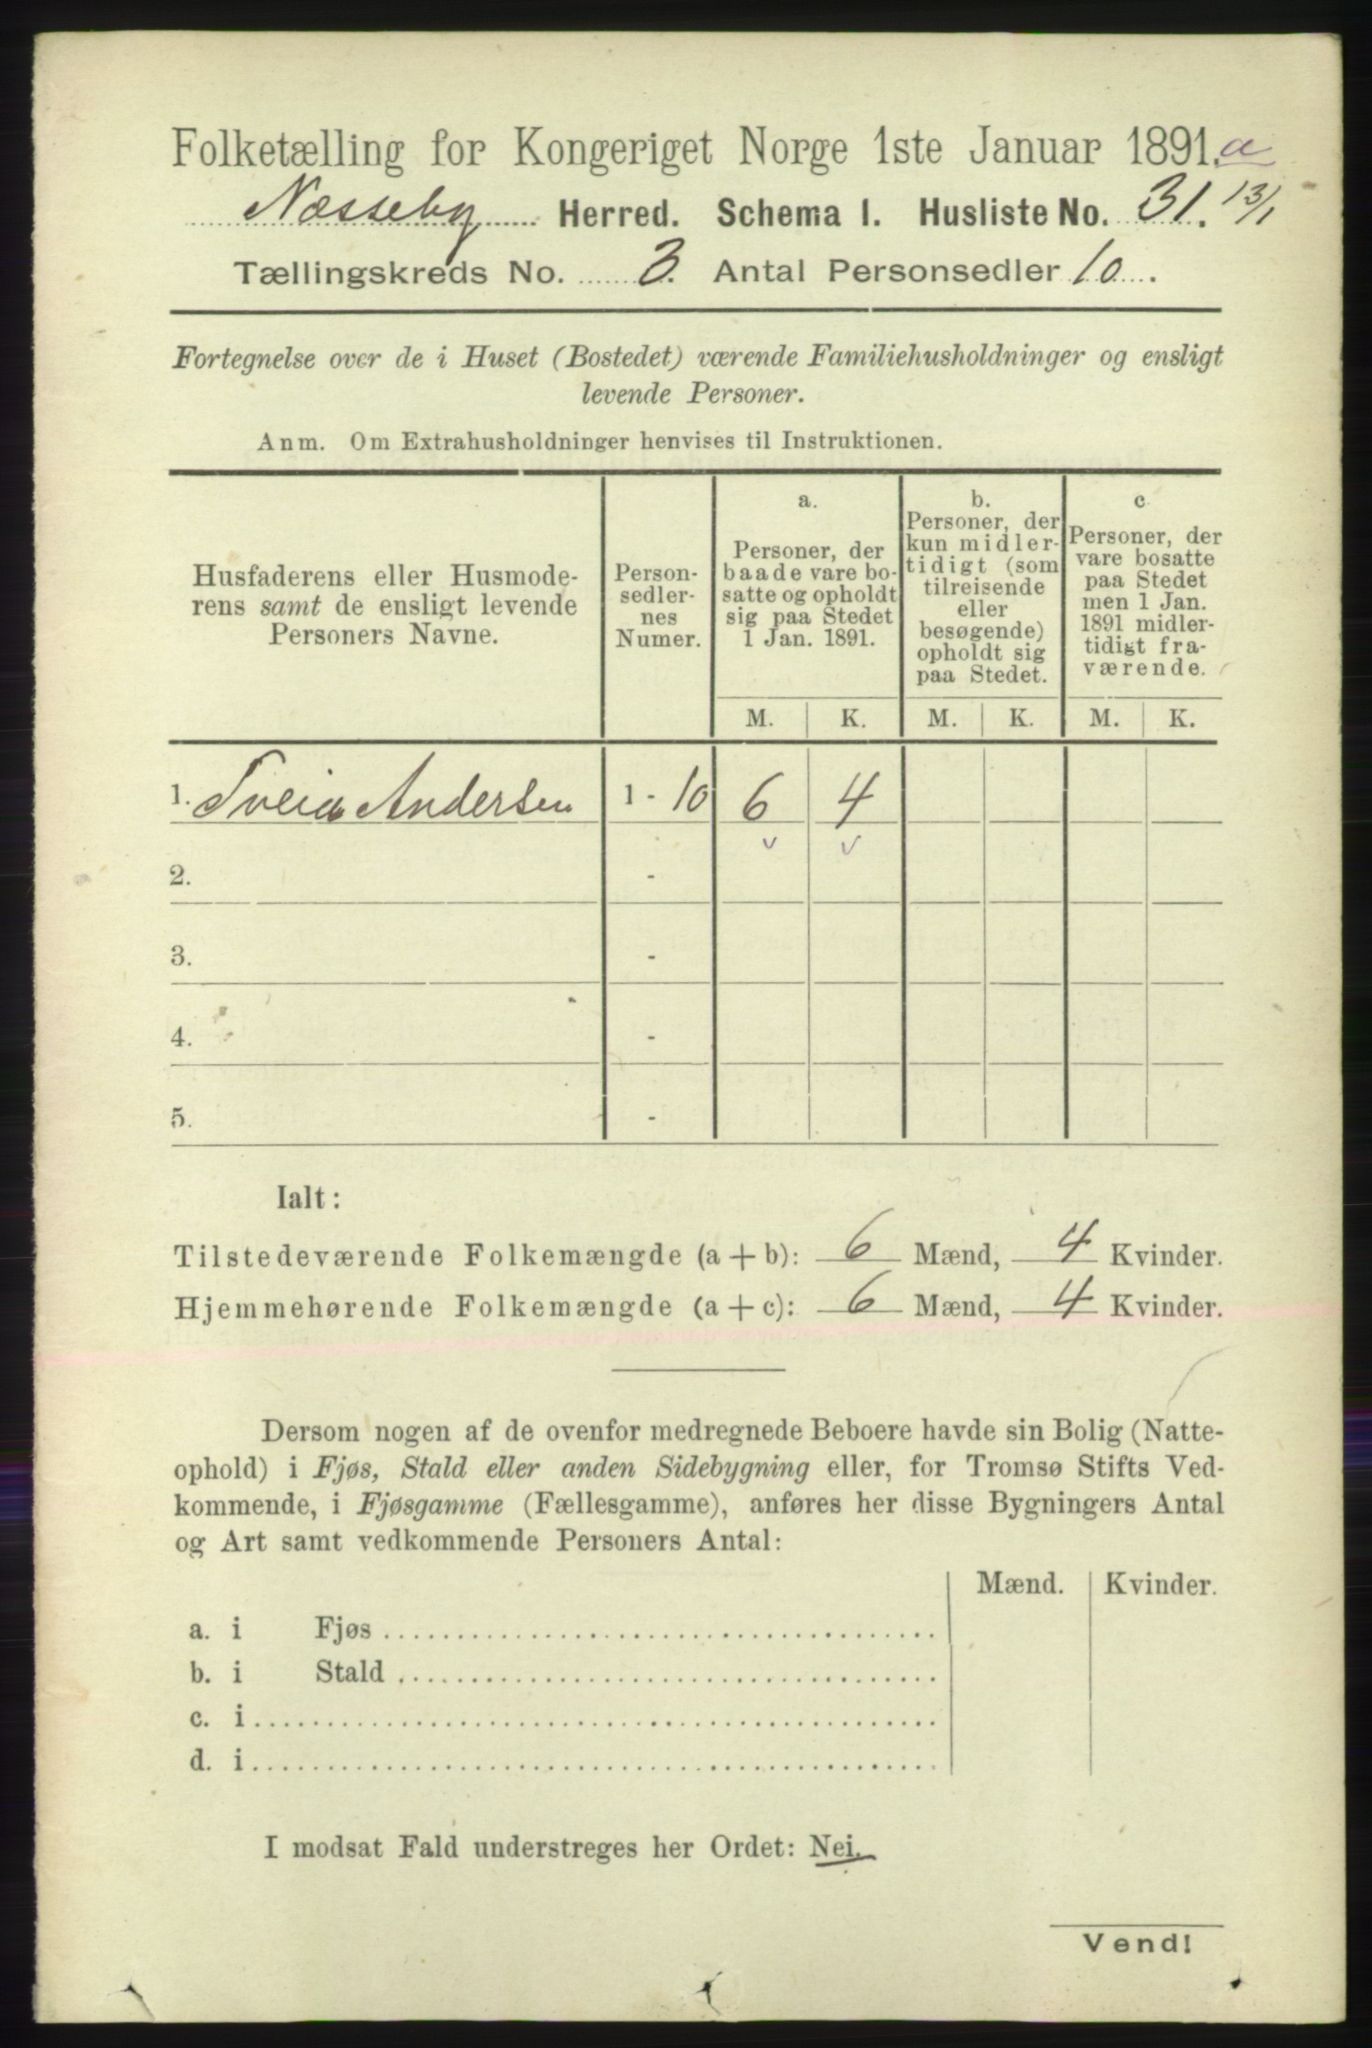 Folketælling for Kongeriget Norge 1ste Januar 1891. a
Næsseby Herred. Schema I. Husliste No. 31. 13/1
Tællingskreds No. 3. Antal Personsedler 10.
Fortegnelse over de i Huset (Bostedet) værende Familiehusholdninger og ensligt
levende Personer.
Anm. Om Extrahusholdninger henvises til Instruktionen.
Husfaderens eller Husmode-
rens samt de ensligt levende
Personers Navne.
Person-
sedler-
nes
Numer.
a.
Personer, der
baade vare bo-
satte og opholdt
sig paa Stedet
1 Jan. 1891.
b.
Personer, der
kun midler-
tidigt (som
tilreisende
eller
besøgende)
opholdt sig
paa Stedet.
c
Personer, der
vare bosatte
paa Stedet
men 1 Jan.
1891 midler-
tidigt fra-
værende.
M. K. M. K. M. K.
1. Andersen 1 - 10 6 4
2. -
3. -
4. -
5. -
Ialt:
Tilstedeværende Folkemængde (a + b): 6 Mænd, 4 Kvinder.
Hjemmehørende Folkemængde (a + c): 6 Mænd, 4 Kvinder.
Dersom nogen af de ovenfor medregnede Beboere havde sin Bolig (Natte-
ophold) i Fjøs, Stald eller anden Sidebygning eller, for Tromsø Stifts Ved-
kommende, i Fjøsgamme (Fællesgamme), anføres her disse Bygningers Antal
og Art samt vedkommende Personers Antal:
Mænd. Kvinder.
a. i Fjøs
b. i Stald
c. i
d. i
I modsat Fald understreges her Ordet: Nei.
Vend!